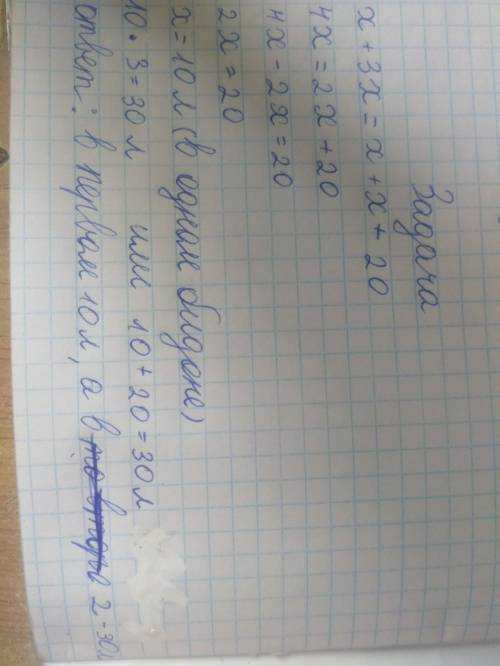 Задача
x + 3x = x + x + 20
4x = 2x + 20
4x - 2x = 20
2x = 20
x = 10 л (в одном бидоне)
10 · 3 = 30 л или 10 + 20 = 30 л
ответ: в первом 10 л, а в 2 - 30 л